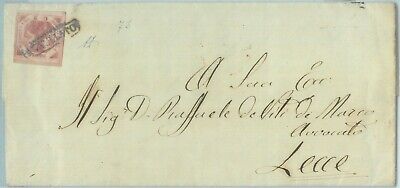 A Sua Ecc.
Il Sig. D. Raffaele de Vito de Marco
Avvocato
Lecce